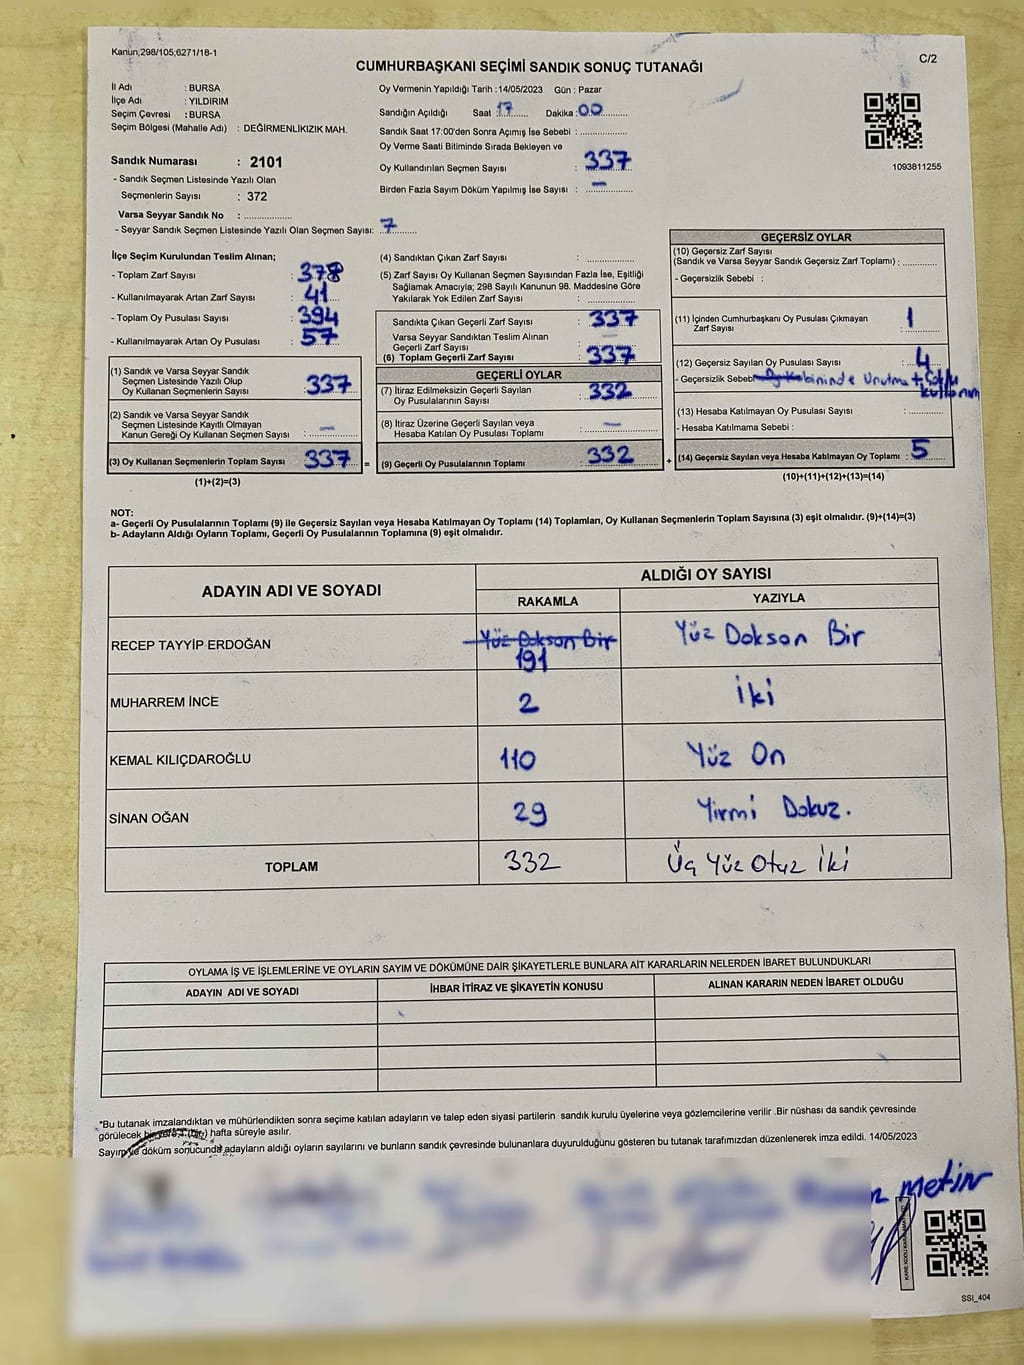 Kanun;298/105,6271/18-1
C/2
CUMHURBAŞKANI SEÇİMİ SANDIK SONUÇ TUTANAĞI
İl Adı : BURSA
İlçe Adı : YILDIRIM
Seçim Çevresi : BURSA
Seçim Bölgesi (Mahalle Adı) : DEĞİRMENLİKIZIK MAH.
Sandık Numarası : 2101
- Sandık Seçmen Listesinde Yazılı Olan
Seçmenlerin Sayısı : 372
Varsa Seyyar Sandık No : ................
- Seyyar Sandık Seçmen Listesinde Yazılı Olan Seçmen Sayısı: 7
Oy Vermenin Yapıldığı Tarih :14/05/2023 Gün : Pazar
Sandığın Açıldığı Saat : 17 Dakika : 00
Sandık Saat 17:00'den Sonra Açımış İse Sebebi : ................
Oy Verme Saati Bitiminde Sırada Bekleyen ve
Oy Kullandırılan Seçmen Sayısı : 337
Birden Fazla Sayım Döküm Yapılmış İse Sayısı : —
1093811255
İlçe Seçim Kurulundan Teslim Alınan;
- Toplam Zarf Sayısı : 378
- Kullanılmayarak Artan Zarf Sayısı : 41
- Toplam Oy Pusulası Sayısı : 394
- Kullanılmayarak Artan Oy Pusulası : 57
(1) Sandık ve Varsa Seyyar Sandık
Seçmen Listesinde Yazılı Olup
Oy Kullanan Seçmenlerin Sayısı : 337
(2) Sandık ve Varsa Seyyar Sandık
Seçmen Listesinde Kayıtlı Olmayan
Kanun Gereği Oy Kullanan Seçmen Sayısı : —
(3) Oy Kullanan Seçmenlerin Toplam Sayısı : 337 =
(1)+(2)=(3)
(4) Sandıktan Çıkan Zarf Sayısı : ................
(5) Zarf Sayısı Oy Kullanan Seçmen Sayısından Fazla İse, Eşitliği
Sağlamak Amacıyla; 298 Sayılı Kanunun 98. Maddesine Göre
Yakılarak Yok Edilen Zarf Sayısı : ................
Sandıkta Çıkan Geçerli Zarf Sayısı : 337
Varsa Seyyar Sandıktan Teslim Alınan
Geçerli Zarf Sayısı : —
(6) Toplam Geçerli Zarf Sayısı : 337
GEÇERLİ OYLAR
(7) İtiraz Edilmeksizin Geçerli Sayılan
Oy Pusulalarının Sayısı : 332
(8) İtiraz Üzerine Geçerli Sayılan veya
Hesaba Katılan Oy Pusulası Toplamı : —
(9) Geçerli Oy Pusulalarının Toplamı : 332 +
GEÇERSİZ OYLAR
(10) Geçersiz Zarf Sayısı
(Sandık ve Varsa Seyyar Sandık Geçersiz Zarf Toplamı) : ............
- Geçersizlik Sebebi :
(11) İçinden Cumhurbaşkanı Oy Pusulası Çıkmayan
Zarf Sayısı : 1
(12) Geçersiz Sayılan Oy Pusulası Sayısı : 4
- Geçersizlik Sebebi Unutma +
(13) Hesaba Katılmayan Oy Pusulası Sayısı : ............
- Hesaba Katılmama Sebebi :
(14) Geçersiz Sayılan veya Hesaba Katılmayan Oy Toplamı : 5
(10)+(11)+(12)+(13)=(14)
NOT:
a- Geçerli Oy Pusulalarının Toplamı (9) ile Geçersiz Sayılan veya Hesaba Katılmayan Oy Toplamı (14) Toplamları, Oy Kullanan Seçmenlerin Toplam Sayısına (3) eşit olmalıdır. (9)+(14)=(3)
b- Adayların Aldığı Oyların Toplamı, Geçerli Oy Pusulalarının Toplamına (9) eşit olmalıdır.
ADAYIN ADI VE SOYADI
ALDIĞI OY SAYISI
RAKAMLA YAZIYLA
RECEP TAYYİP ERDOĞAN Yüz Doksan Bir 191 Yüz Doksan Bir
MUHARREM İNCE 2 İki
KEMAL KILIÇDAROĞLU 110 Yüz On
SİNAN OĞAN 29 Yirmi Dokuz.
TOPLAM 332 Üç Yüz Otuz İki
OYLAMA İŞ VE İŞLEMLERİNE VE OYLARIN SAYIM VE DÖKÜMÜNE DAİR ŞİKAYETLERLE BUNLARA AİT KARARLARIN NELERDEN İBARET BULUNDUKLARI
ADAYIN ADI VE SOYADI İHBAR İTİRAZ VE ŞİKAYETİN KONUSU ALINAN KARARIN NEDEN İBARET OLDUĞU
*Bu tutanak imzalandıktan ve mühürlendikten sonra seçime katılan adayların ve talep eden siyasi partilerin sandık kurulu üyelerine veya gözlemcilerine verilir .Bir nüshası da sandık çevresinde
görülecek bir yere 1 (bir) hafta süreyle asılır.
Sayım ve döküm sonucunda adayların aldığı oyların sayılarını ve bunların sandık çevresinde bulunanlara duyurulduğunu gösteren bu tutanak tarafımızdan düzenlenerek imza edildi. 14/05/2023
metin
SSI_404